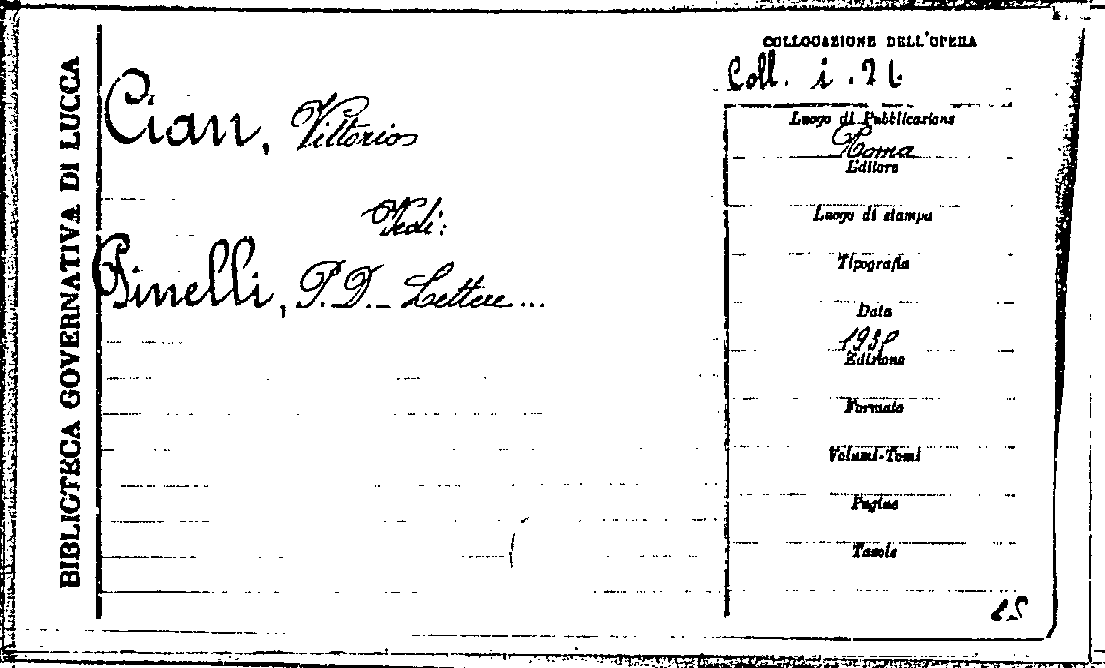 BIBLIOTECA GOVERNATIVA DI LUCCA
COLLOCAZIONE DELL'OPERA
Coll. i.
Cian, Vittorio
Vedi:
Pinelli, P. D. - Lettere ...
Luogo di Pubblicazione
Roma
Editore
Luogo di stampa
Tipografia
Data
Edizione
Formato
Volumi-Tomi
Pagine
Tavole